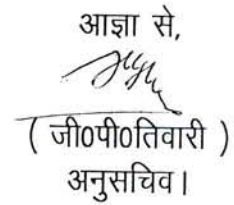 आज्ञा से,
( जी0पी0तिवारी )
अनुसचिव।